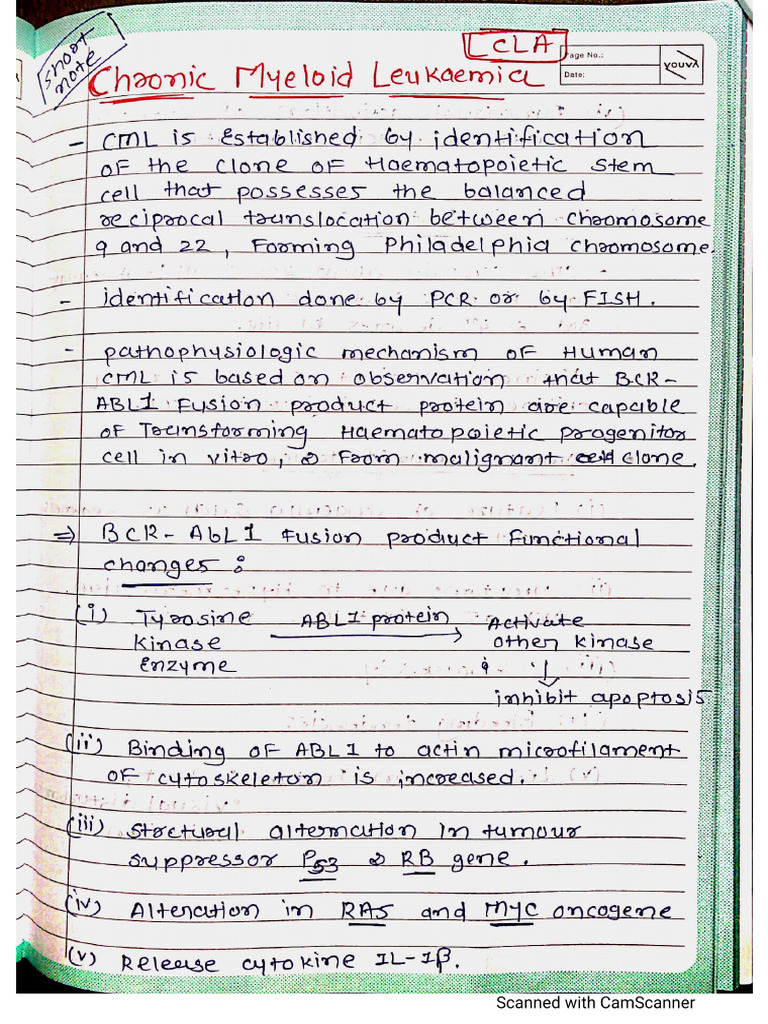 short note
CLA
Page No.:
Date:
YOUVA
Chronic Myeloid Leukaemia
- CML is established by identification
of the clone of Haematopoietic stem
cell that possesses the balanced
reciprocal translocation between chromosome
9 and 22, Forming Philadelphia chromosome.
- identification done by PCR or by FISH.
- pathophysiologic mechanism of Human
CML is based on observation that BCR-
ABL1 Fusion product protein are capable
of Transforming Haematopoietic progenitor
cell in vitro, & from malignant clone.
⇒ BCR-AbL1 Fusion product Functional
changes:
(i) Tyrosine ABL1 protein Activate
kinase → other kinase
Enzyme & ↓
inhibit apoptosis
(ii) Binding of ABL1 to actin microfilament
of cytoskeleton is increased.
(iii) Strctural alternation in tumour
suppressor P53 & RB gene.
(iv) Alteration in RAS and MYC oncogene
(v) Release cytokine IL-1β.
Scanned with CamScanner